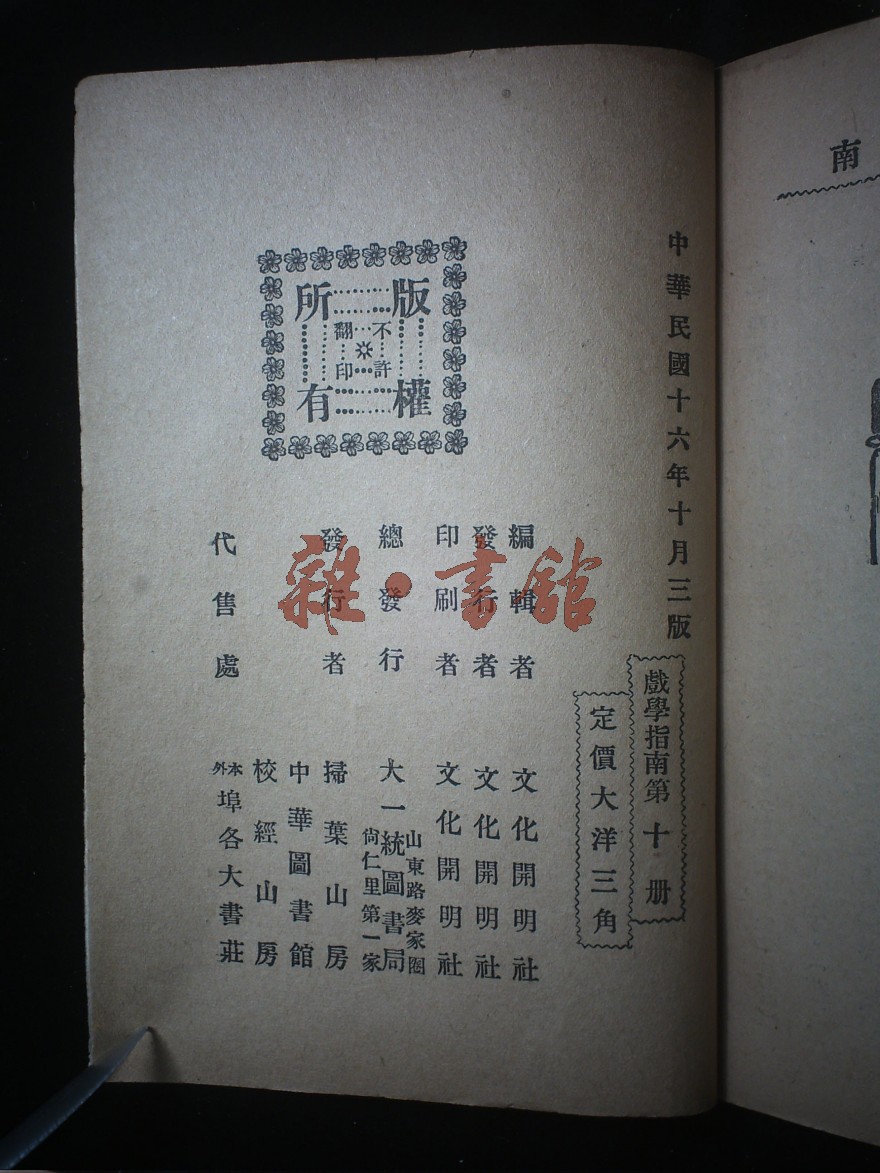 南
中華民國十六年十月三版
戲學指南第十册
定價大洋三角
編輯者 文化開明社
發行者 文化開明社
印刷者 文化開明社
總發行 大一統圖書局
山東路麥家圈
尙仁里第一家
發行者 掃葉山房
中華圖書館
校經山房
代售處 本外埠各大書莊
版權所有
不許翻印
雜·書館